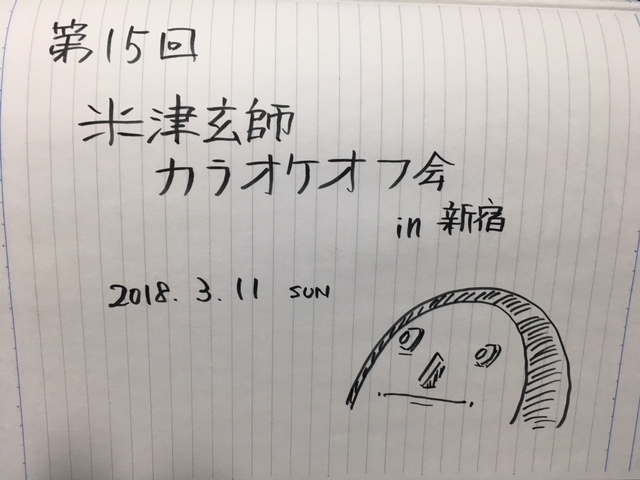 第15回
米津玄師
カラオケオフ会
in 新宿
2018. 3. 11 SUN